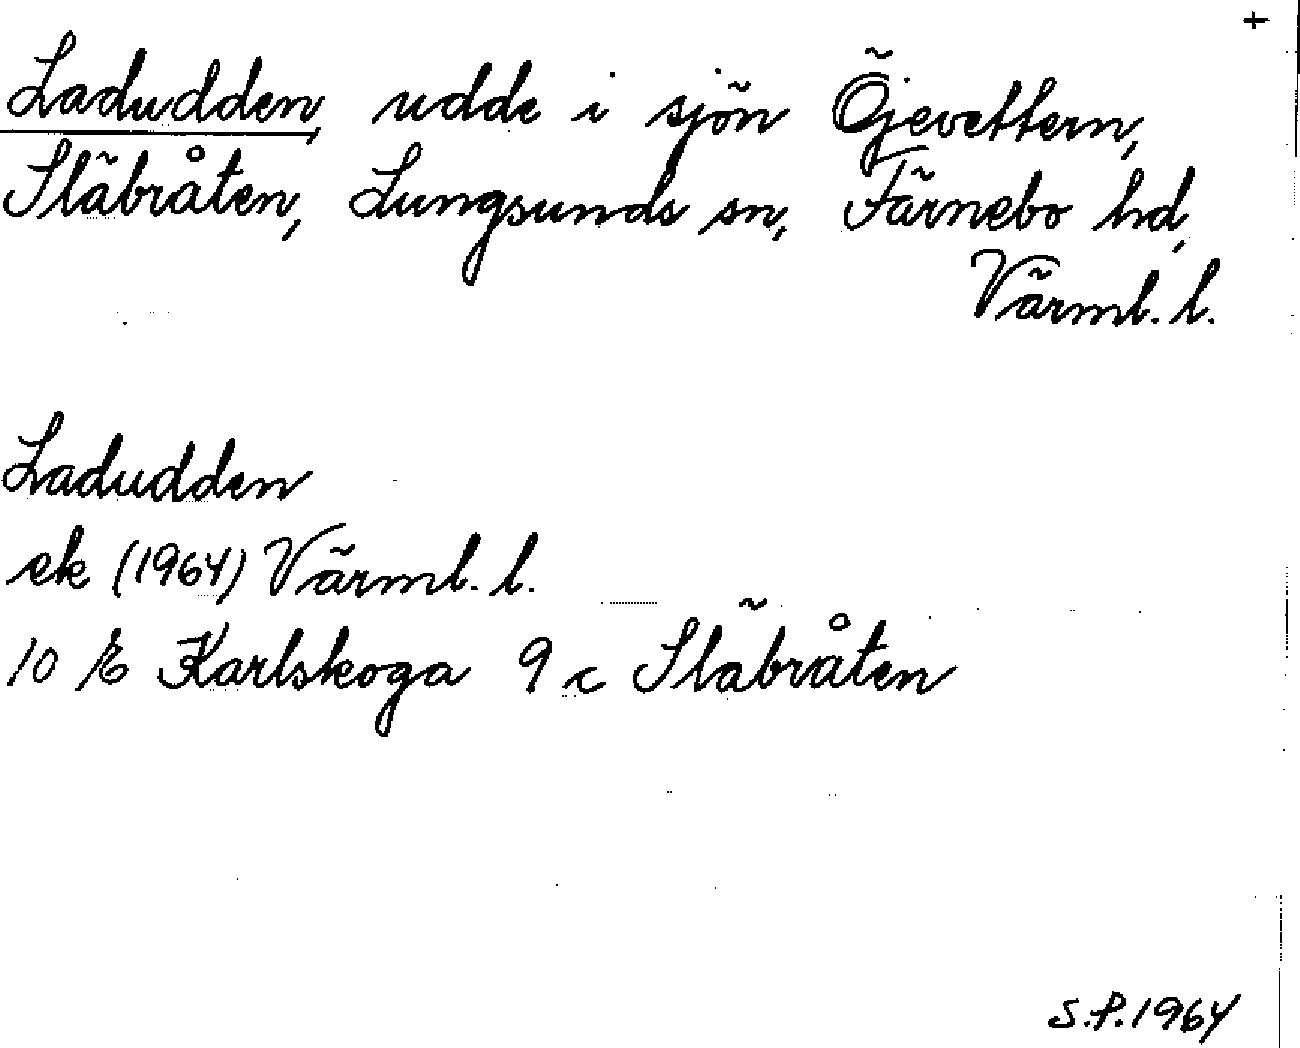 +
Ladudden, udde i sjön Öjevettern,
Släbråten, Lungsunds sn, Färnebo hd,
Värml. l.
Ladudden
ek (1964) Värml. l.
10 E Karlskoga 9 c Släbråten
S.P. 1964